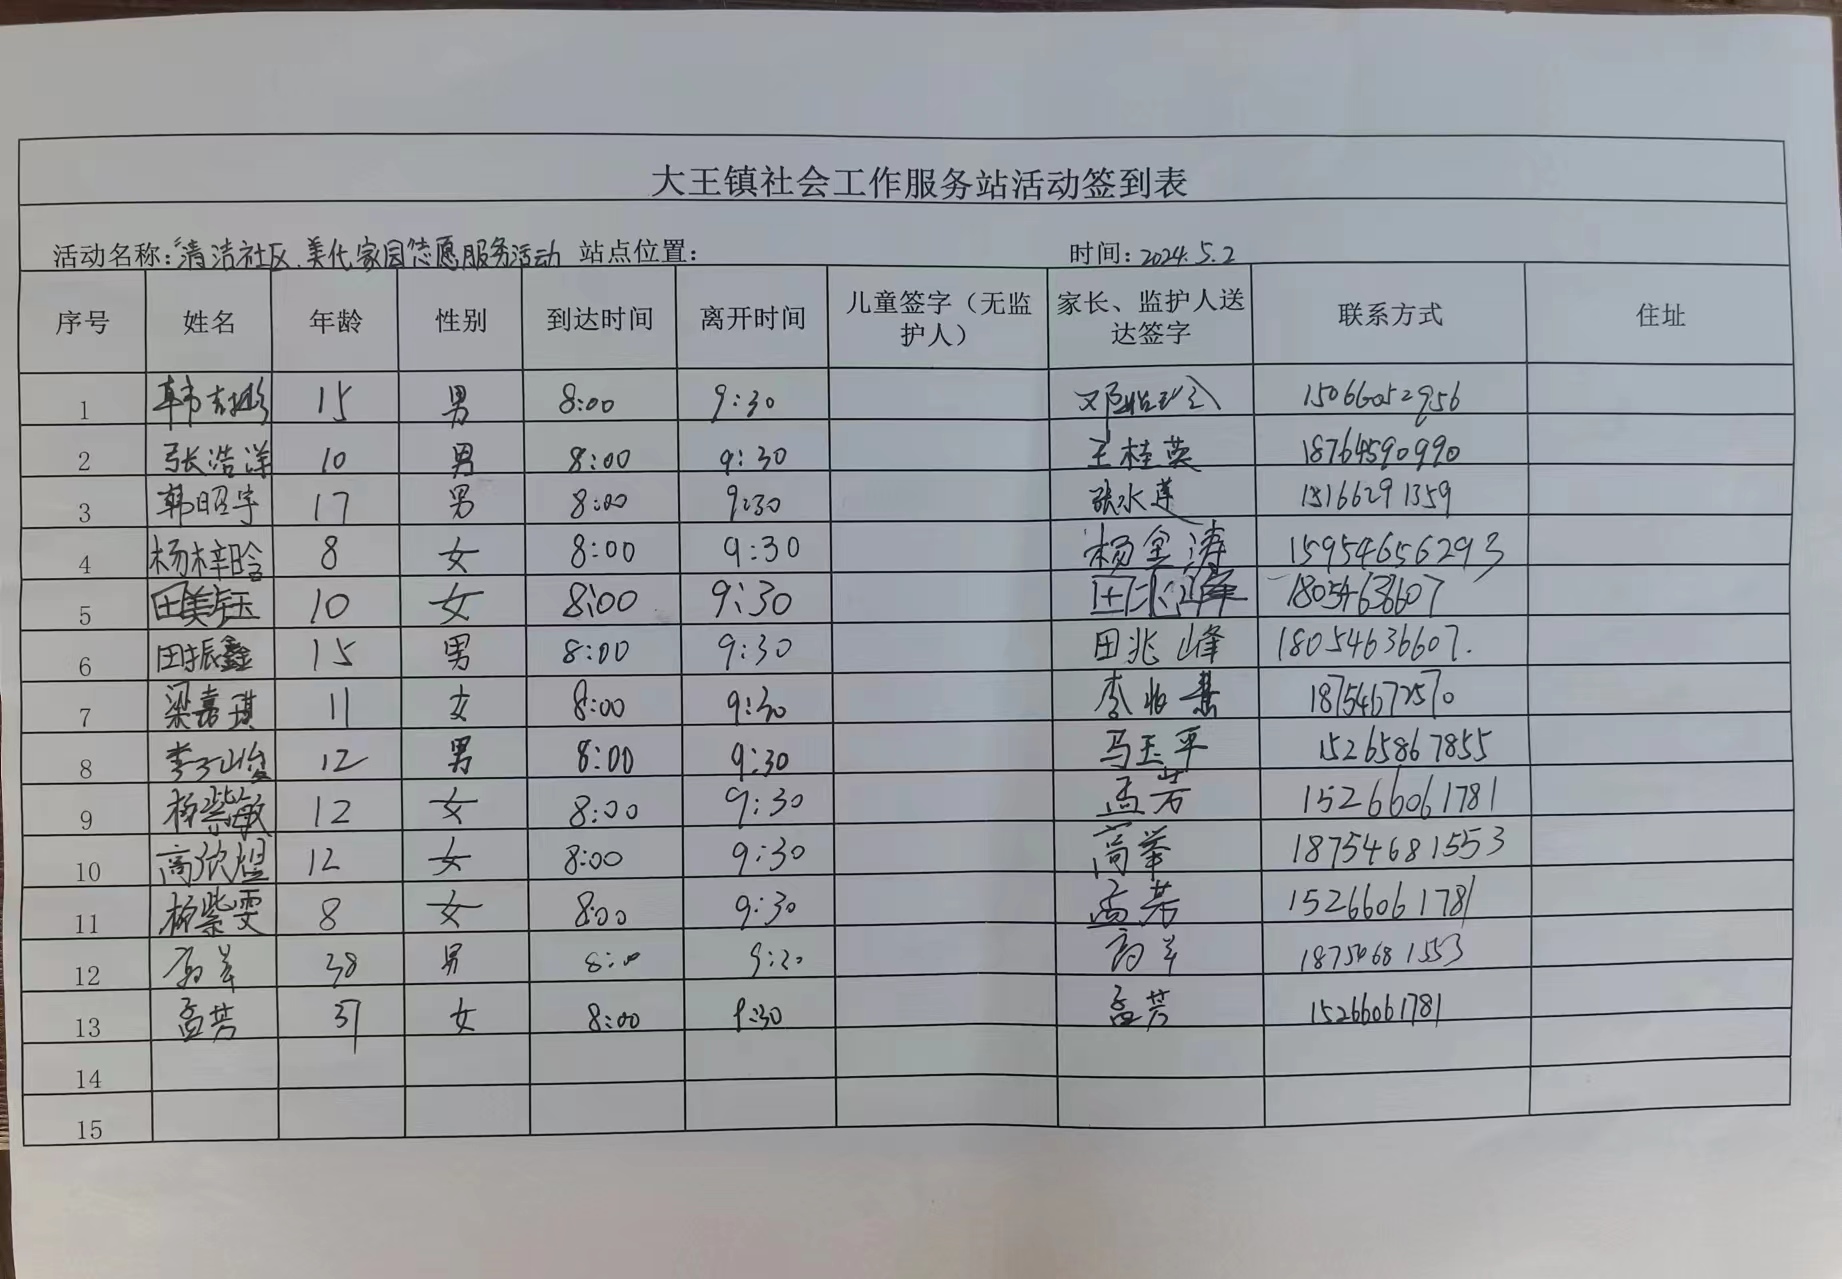 大王镇社会工作服务站活动签到表
活动名称:“清洁社区.美化家园志愿服务活动 站点位置: 时间:2024.5.2
序号 姓名 年龄 性别 到达时间 离开时间 儿童签字（无监护人） 家长、监护人送达签字 联系方式 住址
1 韩 15 男 8:00 9:30 15066052956
2 张浩洋 10 男 8:00 9:30 王桂英 18764590990
3 韩昭宇 17 男 8:00 9:30 张水莲 15166291359
4 杨梓晗 8 女 8:00 9:30 杨金涛 15954656293
5 田美钰 10 女 8:00 9:30 田兆峰
6 田振鑫 15 男 8:00 9:30 田兆峰 18054636607.
7 梁嘉琪 11 女 8:00 9:30 李 18754672570
8 李子俊 12 男 8:00 9:30 马玉平 15265867855
9 杨紫敏 12 女 8:00 9:30 孟芳 15266061781
10 高欣煜 12 女 8:00 9:30 高举 18754681553
11 杨紫雯 8 女 8:00 9:30 孟芳 15266061781
12 高举 38 男 8:00 9:30 高举 18754681553
13 孟芳 37 女 8:00 9:30 孟芳 15266061781
14
15